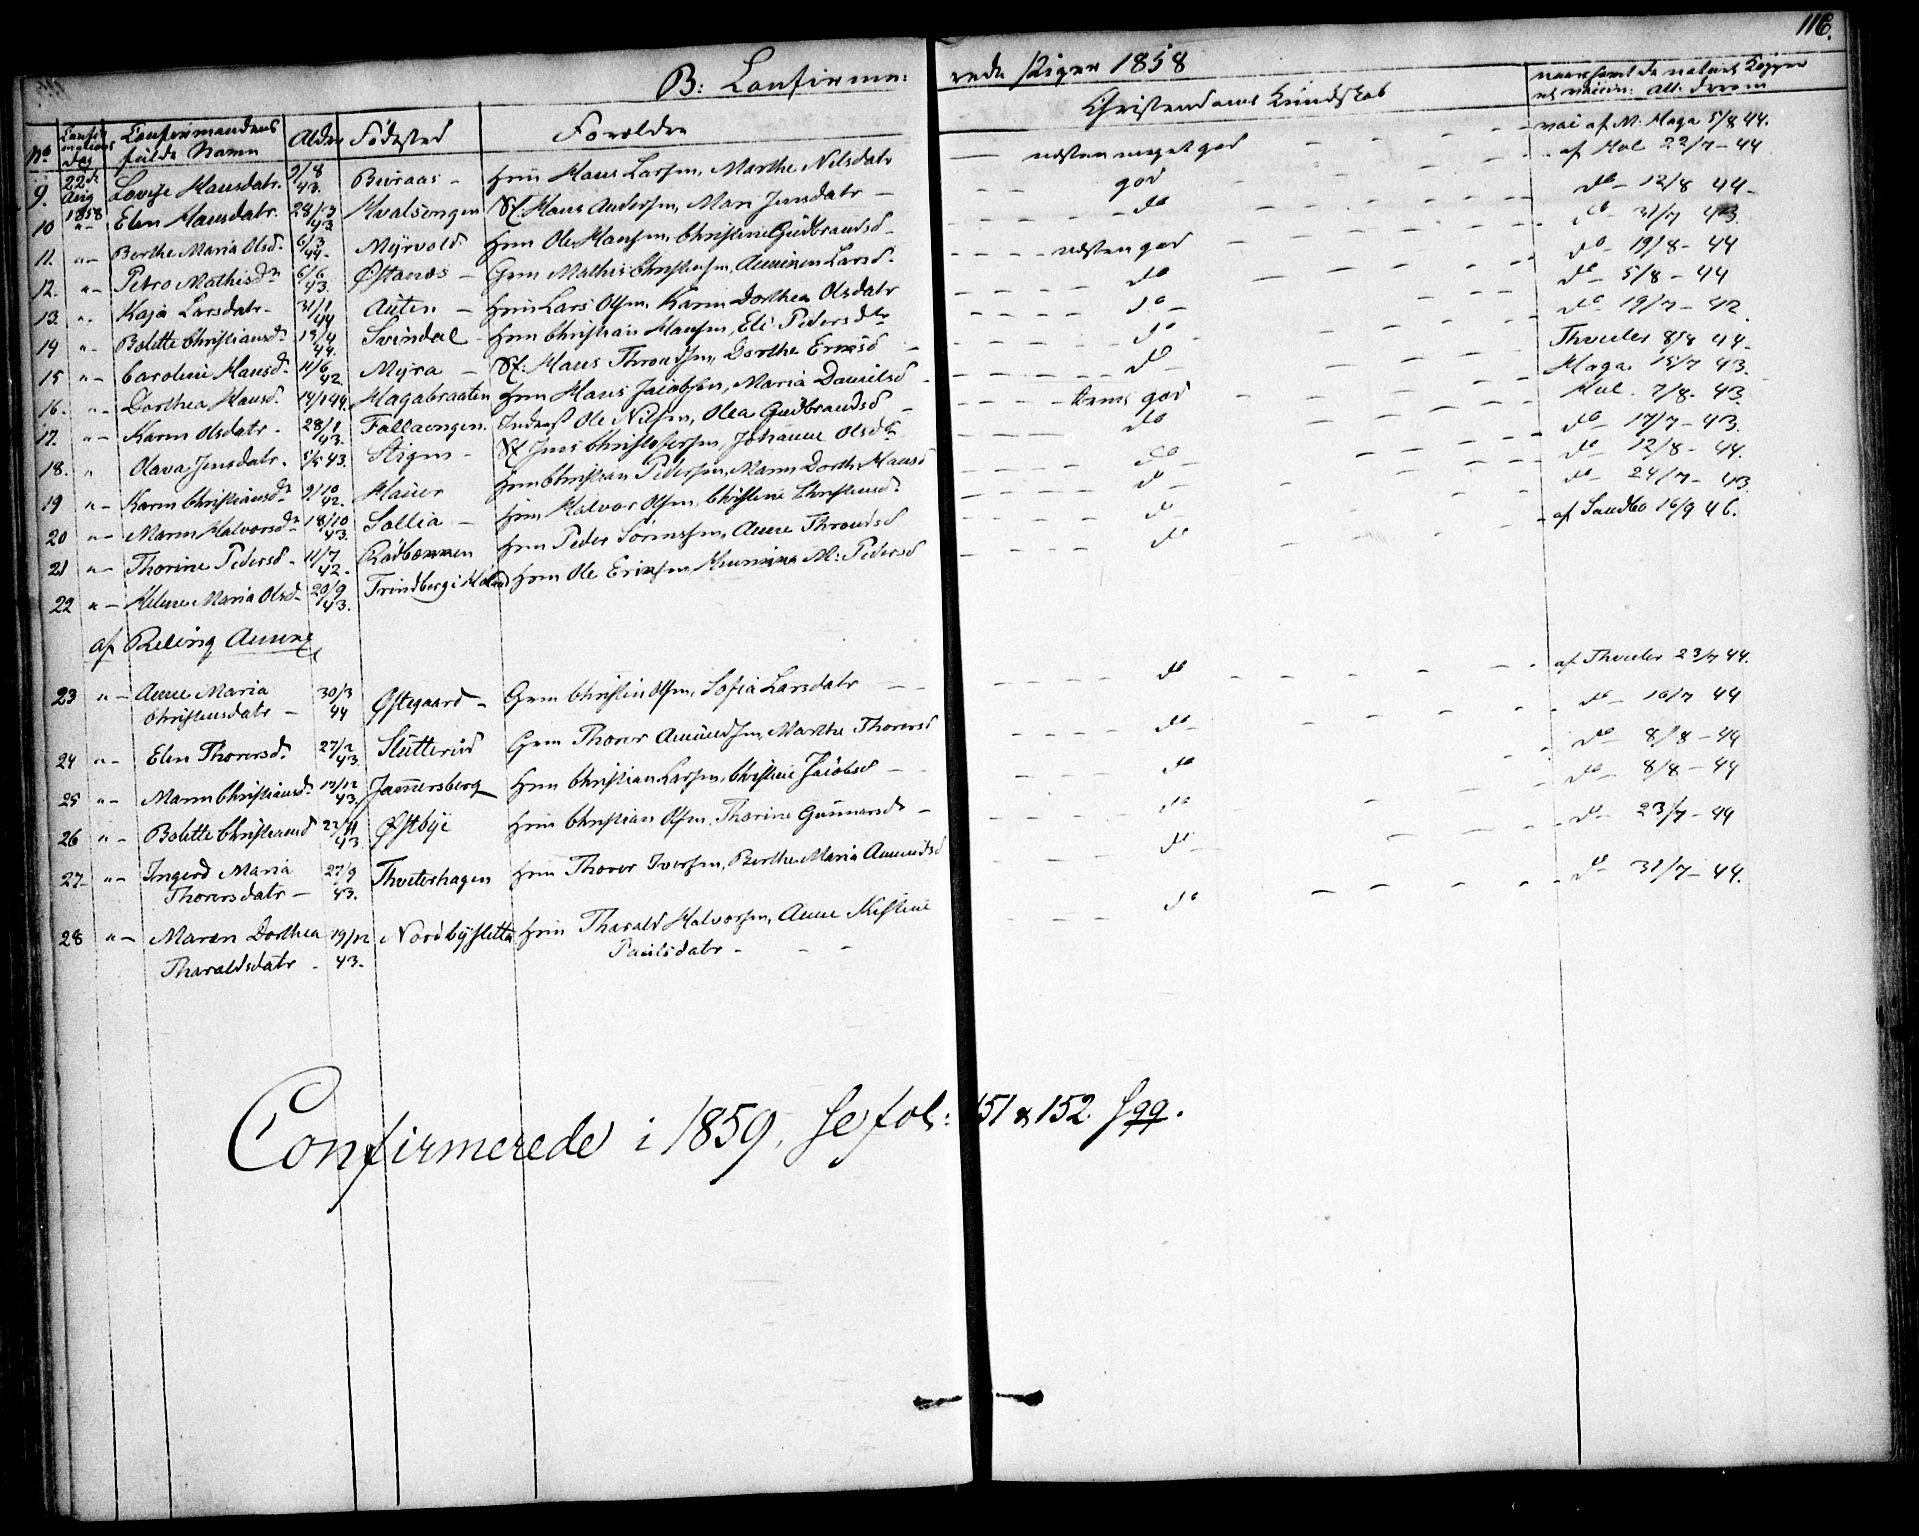 116.
B: Confirme: rede Piger 1858
No Confirmations Dag Confirmandens fulde Navn Alder Fødested Forældre Christendoms Kundskab naar samt de naturl. Kopper el. vaccin: att. derom
9. 22de Aug 1858 Lovise Hansdatr. 9/8 43. Buraas - Hmd Hans Larsen, Marthe Nilsdatr næsten meget god vac af M. Haga 5/8 44.
10 " - Elen Hansdatr. 28/3 43 Hvalsengen Sf. Hans Andersen, Mari Jensdatr - god af Hol 22/7 - 44
11. " - Berthe Maria Olsd. 6/3 44. Myrvold Hmd Ole Hansen, Christine Gudbrandsd - do do - 12/8 44 -
12. " - Petro Mathisdr 6/6 43. Østanes - Grm Mathis Christensen, Larsd. næsten god do 31/7 43.
13. " - Kaja Larsdatr - 31/1 44 Auten - Hmd Lars Olsen, Karen Dorthea Olsdatr do do - 19/8 - 44
14 " - Bolette Christiansdr 14. Svindal - Hmd Christian Hansen, Eli Pedersdr do - do - 5/8 - 44
15 " - Caroline Hansd. 11/6 42 Myra - Sf. Hans Throndsen, Dorthe Ericsd - do do - 19/7 - 42
16. " - Dorthea Hansd. 14/1 44. Hagabraaten Hmd Hans Jacobsen, Maria Danielsd - do Thveter 8/8 44 -
17. " - Karen Olsdatr - 28/1 43. Fallaengen. Inderst Ole Nilsen, Olea Gudbrandsd - temi god Haga 15/7 43.
18. " Olava Jensdatr. 5/5 43. Stigen - Sf Jens Christophersen, Johanne Olsdr do Hol. 7/8 - 43.
19 " - Karen Christiansdr 9/10 42. Hauer Hmd Christian Pedersen, Maren Dorth. Hansd do - do - 17/7 - 43.
20 " - Maren Halvorsdr 18/10 43. Sollia - Hmd Halvor Olsen, Christine Christensdr do - do - 12/8 - 44.
21 " - Thorine Pedersd - 11/7 42. Rødbønnen Hmd Peder Sørensen, Anne Throndsd do - do - 24/7 - 43.
22 " - Helene Maria Olsd - 20/9 43. Trindberg i Holand Hmd Ole Ericsen, M: Pedersd do af Sandbo 16/9 46.
af Reling Annex
23 " - Anne Maria Christensdatr - 30/3 44 Østegaard - Grm Christen Olsen, Sofia Larsdatr - - do af Thveter 23/7 44.
24 " - Elen Thorersd. 27/12 43. Slutterud Grm Thorer Amundsen, Marthe Thorersd do - do - 16/7 44
25 " - Maren Christiansdr 17/12 43. Jammersberg Hmd Christian Larsen, Christine Jacobsd - do do - 8/8 - 44
26 " - Bolette Christiansd 27/11 43 Østbye Hmd Christian Olsen, Thorine Gunnarsd - do do - 8/8 - 44
27 - " - Ingerd Maria Thorersdatr - 27/9 43. Thveterhagen Hmd Thorer Iversen, Berthe Maria Amundsd do - do - 23/7 - 44
28 " - Maren Dorthea Tharaldsdatr - 19/12 43 - Nordbysletta Hmd Tharald Halvorsen, Anne Kistine Paulsdatr - - - do do - 31/7 - 44.
Confirmerede i 1859, se fol: 151 & 152. sqq.